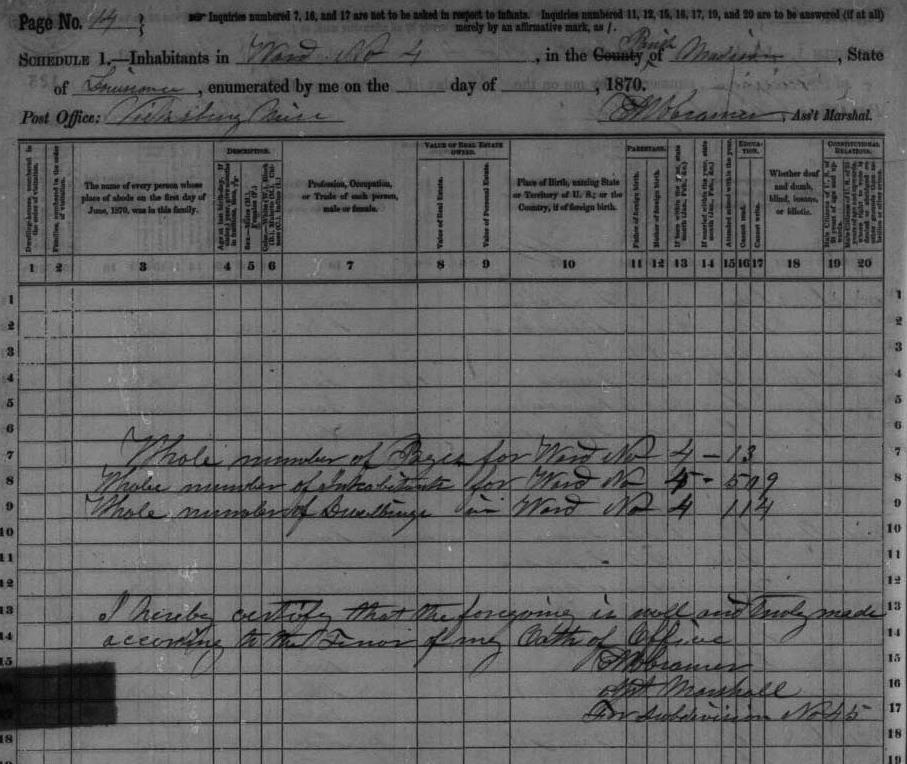 Page No. 14 } ☞ Inquiries numbered 7, 16, and 17 are not to be asked in respect to infants. Inquiries numbered 11, 12, 15, 16, 17, 19, and 20 are to be answered (if at all)
merely by an affirmative mark, as /.
SCHEDULE 1.—Inhabitants in Ward No 4, in the County Parish of Madison, State
of Louisiana, enumerated by me on the day of , 1870.
Post Office: Vicksburg Miss Cramer, Ass't Marshal.
DESCRIPTION. VALUE OF REAL ESTATE OWNED. PARENTAGE. EDUCATION. CONSTITUTIONAL RELATIONS.
Dwelling-houses numbered in the order of visitation.
Families, numbered in the order of visitation.
The name of every person whose place of abode on the first day of June, 1870, was in this family.
Profession, Occupation, or Trade of each person, male or female.
Value of Real Estate.
Value of Personal Estate.
Place of Birth, naming State or Territory of U. S.; or the Country, if of foreign birth.
Father of foreign birth.
Mother of foreign birth.
Attended school within the year.
Cannot read.
Cannot write.
Whether deaf and dumb, blind, insane, or idiotic.
1 2 3 4 5 6 7 8 9 10 11 12 13 14 15 16 17 18 19 20
1 1
2 2
3 3
4 4
5 5
6 6
7 Whole number of Pages for Ward No 4 - 13 7
8 Whole number of Inhabitants for Ward No 4 - 519 8
9 Whole number of Dwellings in Ward No 4 114 9
10 10
11 11
12 12
13 I hereby certify that the foregoing is well and truly made 13
14 according to the Tenor of my Oath of Office 14
15 Cramer 15
Asst Marshall 16
For Subdivision No 45 17
18 18
19